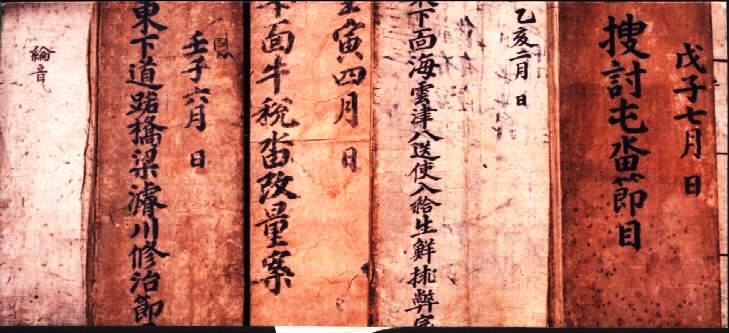 戊子七月 日
搜討屯畓節目
乙亥二月 日
下面海雲津八送使入給生鮮排弊
寅四月 日
面牛稅畓改量案
壬子六月 日
東下道路橋梁濬川修治節
綸音